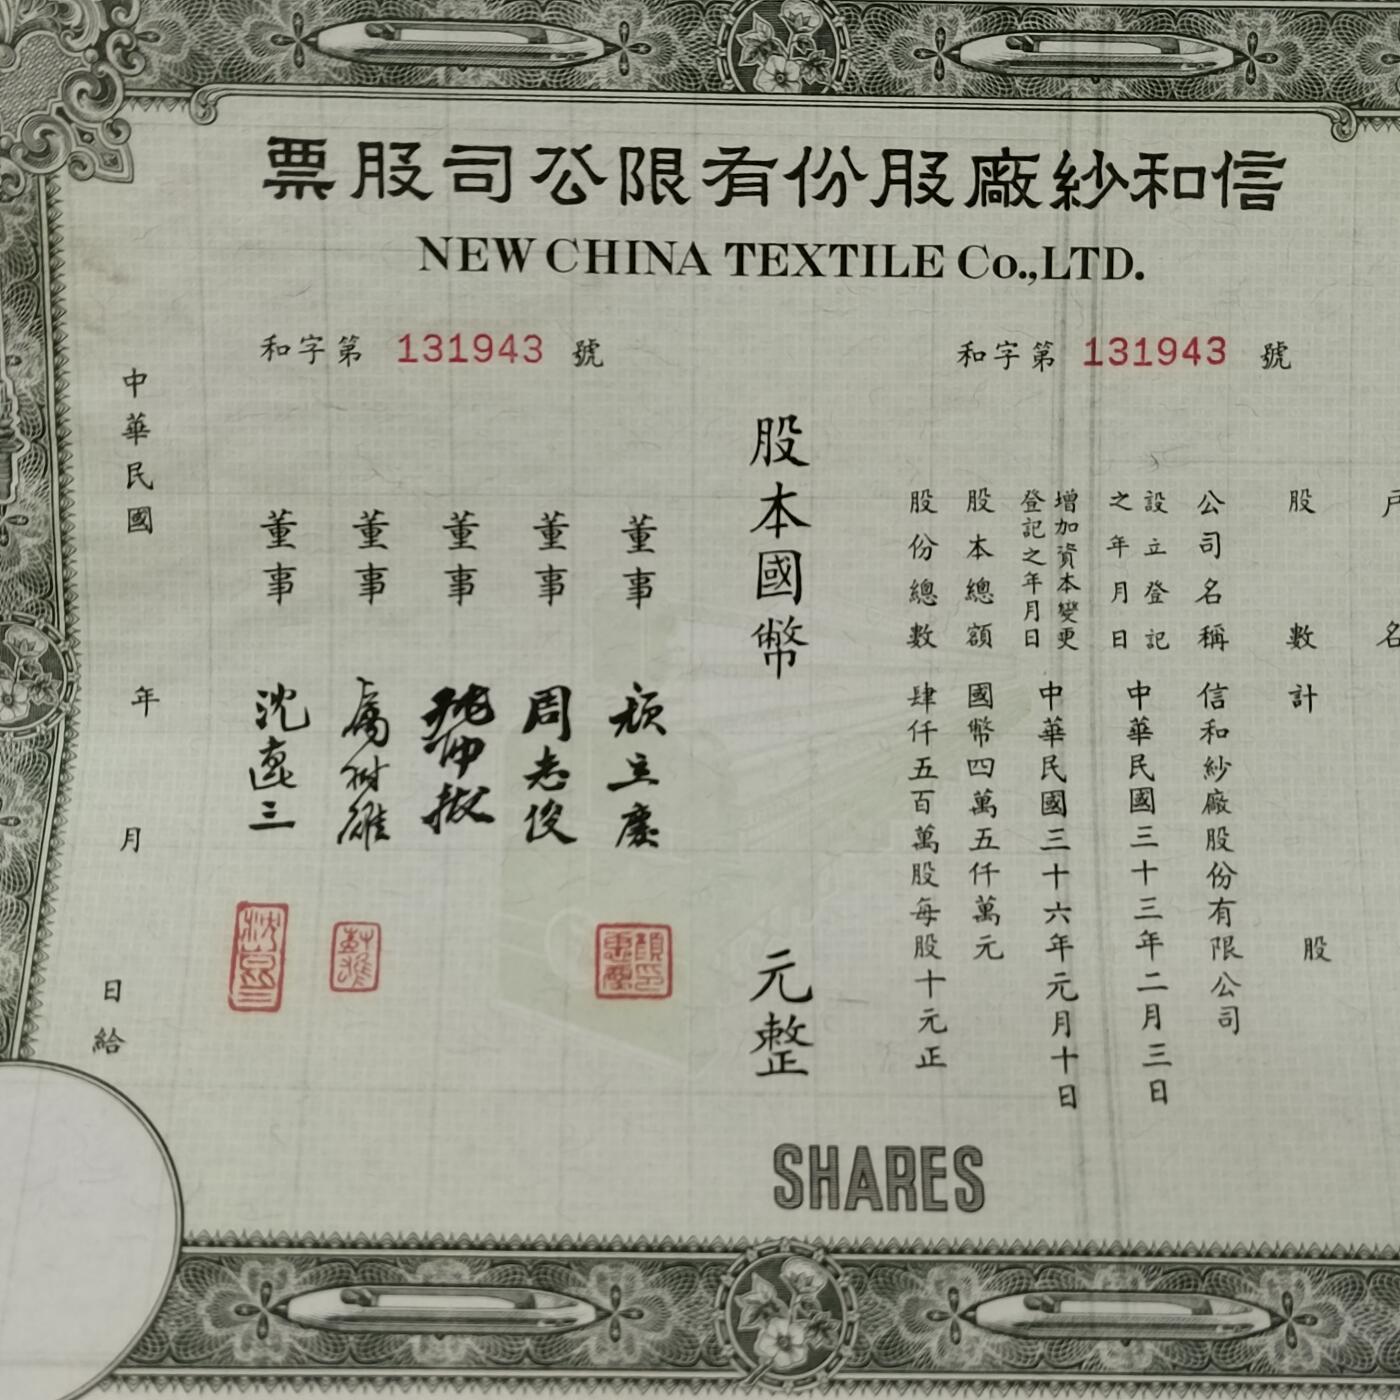 信和紗廠股份有限公司股票
NEW CHINA TEXTILE Co.,LTD.
和字第 131943 號
和字第 131943 號
戶名
股數計 股
公司名稱 信和紗廠股份有限公司
設立登記之年月日 中華民國三十三年二月三日
增加資本變更登記之年月日 中華民國三十六年元月十日
股本總額 國幣四萬五仟萬元
股份總數 肆仟五百萬股每股十元正
股本國幣 元整
董事 顏立慶
董事 周志俊
董事
董事 厲樹雄
董事 沈遠三
中華民國 年 月 日給
SHARES